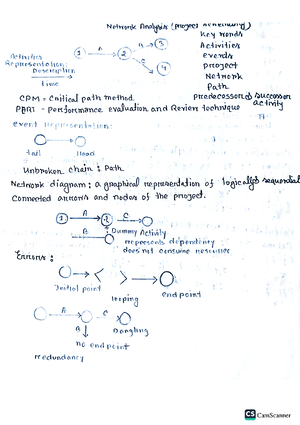 Network Analysis (project scheduling)
Key words
Activities
events
project
Network
Path
predecessor & successor
activity
1 A 2 B 3
C 4
Activities
Representation:
Description
Time
CPM = Critical path method
PERT - Performance evaluation and Review technique
Event Representation:
tail Head
Unbroken chain : Path
Network diagram : a graphical representation of logically & sequential
Connected arrows and nodes of the project.
1 A 2 C
B
Dummy Activity
represents dependency
does not consume resources
Errors :
Initial point
looping
end point
A C
B
Dangling
no end point
redundancy
CS CamScanner